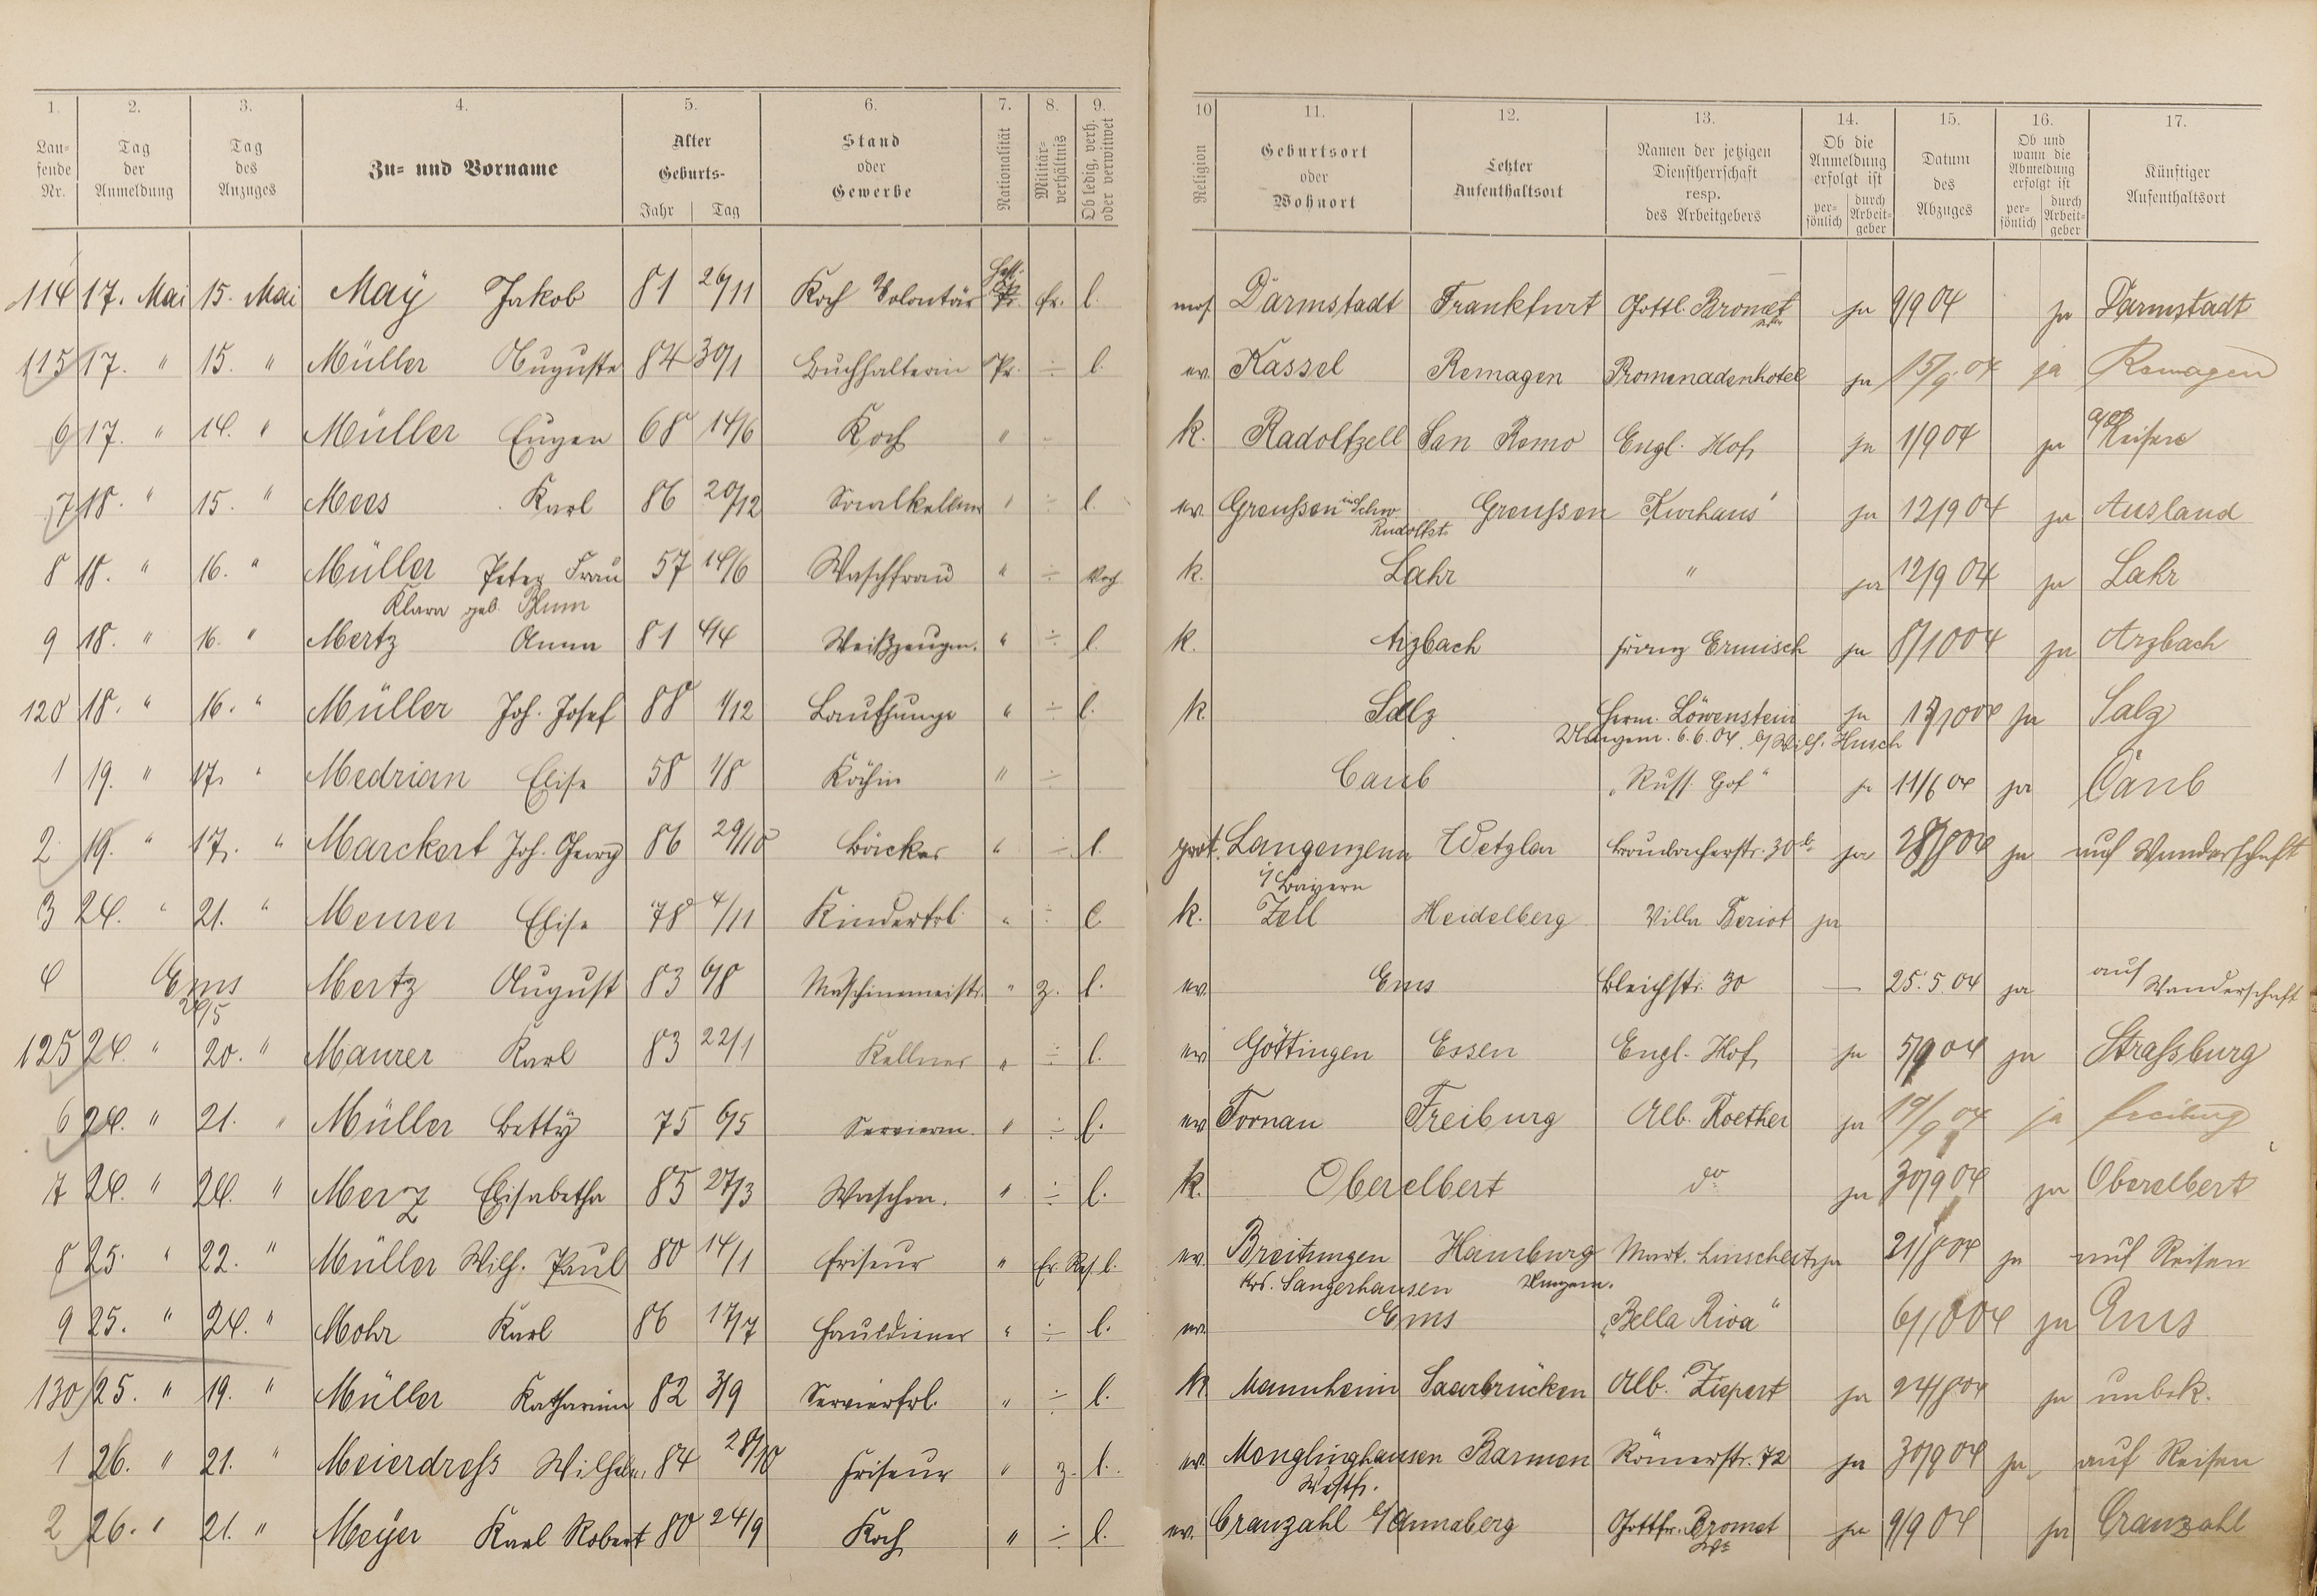 1. 2. 3. 4. 5. 6. 7. 8. 9. 10 11. 12. 13. 14. 15. 16. 17.
Lau=
fende
Nr.
Tag
der
Anmeldung
Tag
des
Anzuges
Zu= und Vorname
Alter
Geburts-
Jahr Tag
Stand
oder
Gewerbe
Nationalität
Militär-
verhältnis
Ob ledig, verh.
oder verwitwet
Religion
Geburtsort
oder
Wohnort
Letzter
Aufenthaltsort
Namen der jetzigen
Dienstherrschaft
resp.
des Arbeitgebers
Ob die
Anmeldung
erfolgt ist
per-
sönlich
durch
Arbeit-
geber
Datum
des
Abzuges
Ob und
wann die
Abmeldung
erfolgt ist
per-
sönlich
durch
Arbeit-
geber
Künftiger
Aufenthaltsort
114 17. Mai 15. Mai Maÿ Jakob 81 26/11 Koch Volontär fr. l. mos. Darmstadt Frankfurt Gottl. Bromet ja 9/9 04 ja Darmstadt
115 17. " 15. " Müller Auguste 84 30/1 Buchhalterin Pr. ÷ l. ev. Kassel Remagen Promenadenhotel ja 15/9.04 ja Remagen
6 17. " 14. " Müller Eugen 68 14/6 Koch " - k. Radolfzell San Remo Engl. Hof ja 1/9 04 ja auf Reisen
7 18. " 15. " Mees Karl 86 20/12 Saalkellner " ÷ l. ev. Greußen in Schw. Greußen Kurhaus ja 12/9 04 ja Ausland
Rudolfst.
8 18. " 16. " Müller Peter Frau 57 14/6 Waschfrau " ÷ k. Lahr " ja 12/9 04 ja Lahr
Klara geb. Blum
9 18. " 16. " Mertz Anna 81 4/4 Weißzeugm. " ÷ l. k. Arzbach Franz Ermisch ja 8/10 04 ja Arzbach
120 18. " 16. " Müller Joh. Josef 88 1/12 Laufjunge " ÷ l. k. Salz Herm. Löwenstein ja ja Salz
6.6.04. b/ Wilh. Husch
1 19. " 17. " Medrian Elise 58 1/8 Köchin " ÷ Caub "Russ. Hof" ja 11/6 04 ja Caub
2 19. " 17. " Marckert Joh. Georg 86 29/10 Bäcker " ÷ l. prot. Langenzenn Wetzlar Braubacherstr. 30 b. ja 28/8 04 ja auf Wanderschaft
i/ Bayern
3 24. " 21. " Meurer Elise 78 4/11 Kinderfrl. " ÷ l. k. Zell Heidelberg Villa Beriot ja
4 Ems Mertz August 83 6/8 Maschinenmeistr. " z. l. ev. Ems Bleichstr. 30 — 25.5.04 ja auf Wanderschaft
24/5
125 24. " 20. " Maurer Karl 83 22/1 Kellner " ÷ l. ev Göttingen Essen Engl. Hof ja 5/9 04 ja Straßburg
6 24. " 21. " Müller Bettÿ 75 6/5 Servierm. " ÷ l. ev Tornau Freiburg Alb. Roether ja 19/9 04 ja Freiburg
7 24. " 24. " Merz Elisabetha 85 27/3 Waschm. " ÷ l. k. Oberelbert do ja 30/9 04 ja Oberelbert
8 25. " 22. " Müller Wilh. Paul 80 14/1 Friseur " Er. Res. l. ev. Breitungen Hamburg Mart. Linscheit ja 21/8 04 ja auf Reisen
Krs. Sangerhausen
9 25. " 24. " Mohr Karl 86 17/7 Hausdiener " ÷ l. ev. Ems "Bella Riva" 6/10 04 ja Ems
130 25. " 19. " Müller Katharina 82 3/9 Servierfrl. " ÷ l. k Mannheim Saarbrücken Alb. Ziepert ja 24/8 04 ja unbek.
1 26. " 21. " Meierdreß Wilhelm. 84 28/10 Friseur " z. l. ev. Monglinghausen Barmen Römerstr. 72 ja 30/9 04 ja auf Reisen
Westf.
2 26. " 21. " Meÿer Karl Robert 80 24/9 Koch " ÷ l. ev. Cranzahl b/ Annaberg Gottfr. Bromet ja 9/9 04 ja Cranzahl